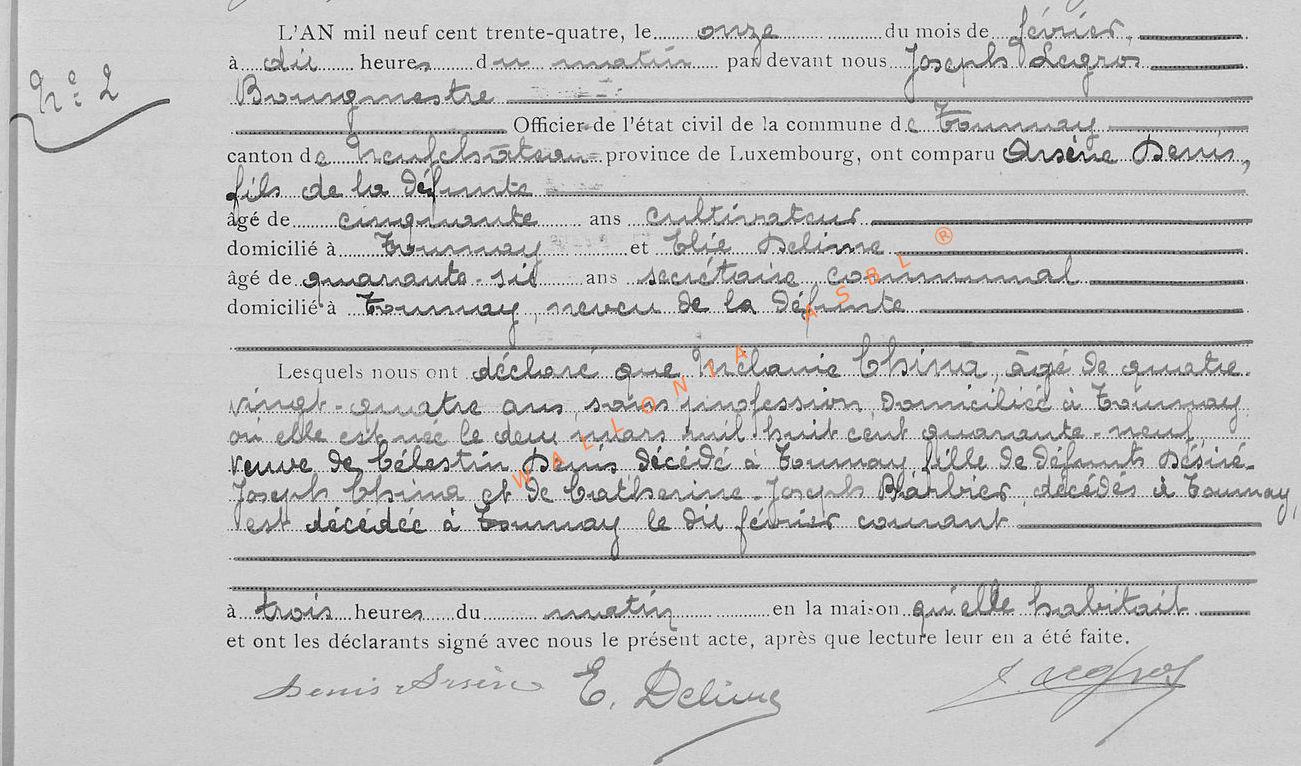 L'AN mil neuf cent trente-quatre, le onze du mois de février,
à dix heures du matin par devant nous Joseph Legros
Nº 2
Bourgmestre
Officier de l'état civil de la commune de Tournay
canton de Neufchâteau province de Luxembourg, ont comparu Arsène Denis,
fils de la défunte
âgé de cinquante ans cultivateur
domicilié à Tournay et Elie Delime
âgé de quarante-six ans secrétaire communal
domicilié à Tournay, neveu de la défunte
Lesquels nous ont déclaré que Mélanie China, âgé de quatre-
vingt-quatre ans sans profession, domiciliée à Tournay
où elle est née le deux mars mil huit cent quarante-neuf,
veuve de Célestin Denis décédé à Tournay, fille de défunts Désiré-
Joseph China et de Catherine-Joseph Barbier décédés à Tournay,
est décédée à Tournay le dix février courant
à trois heures du matin en la maison qu'elle habitait
et ont les déclarants signé avec nous le présent acte, après que lecture leur en a été faite.
Denis Arsène E. Delime J. Legros
WALLONIA ASBL ®